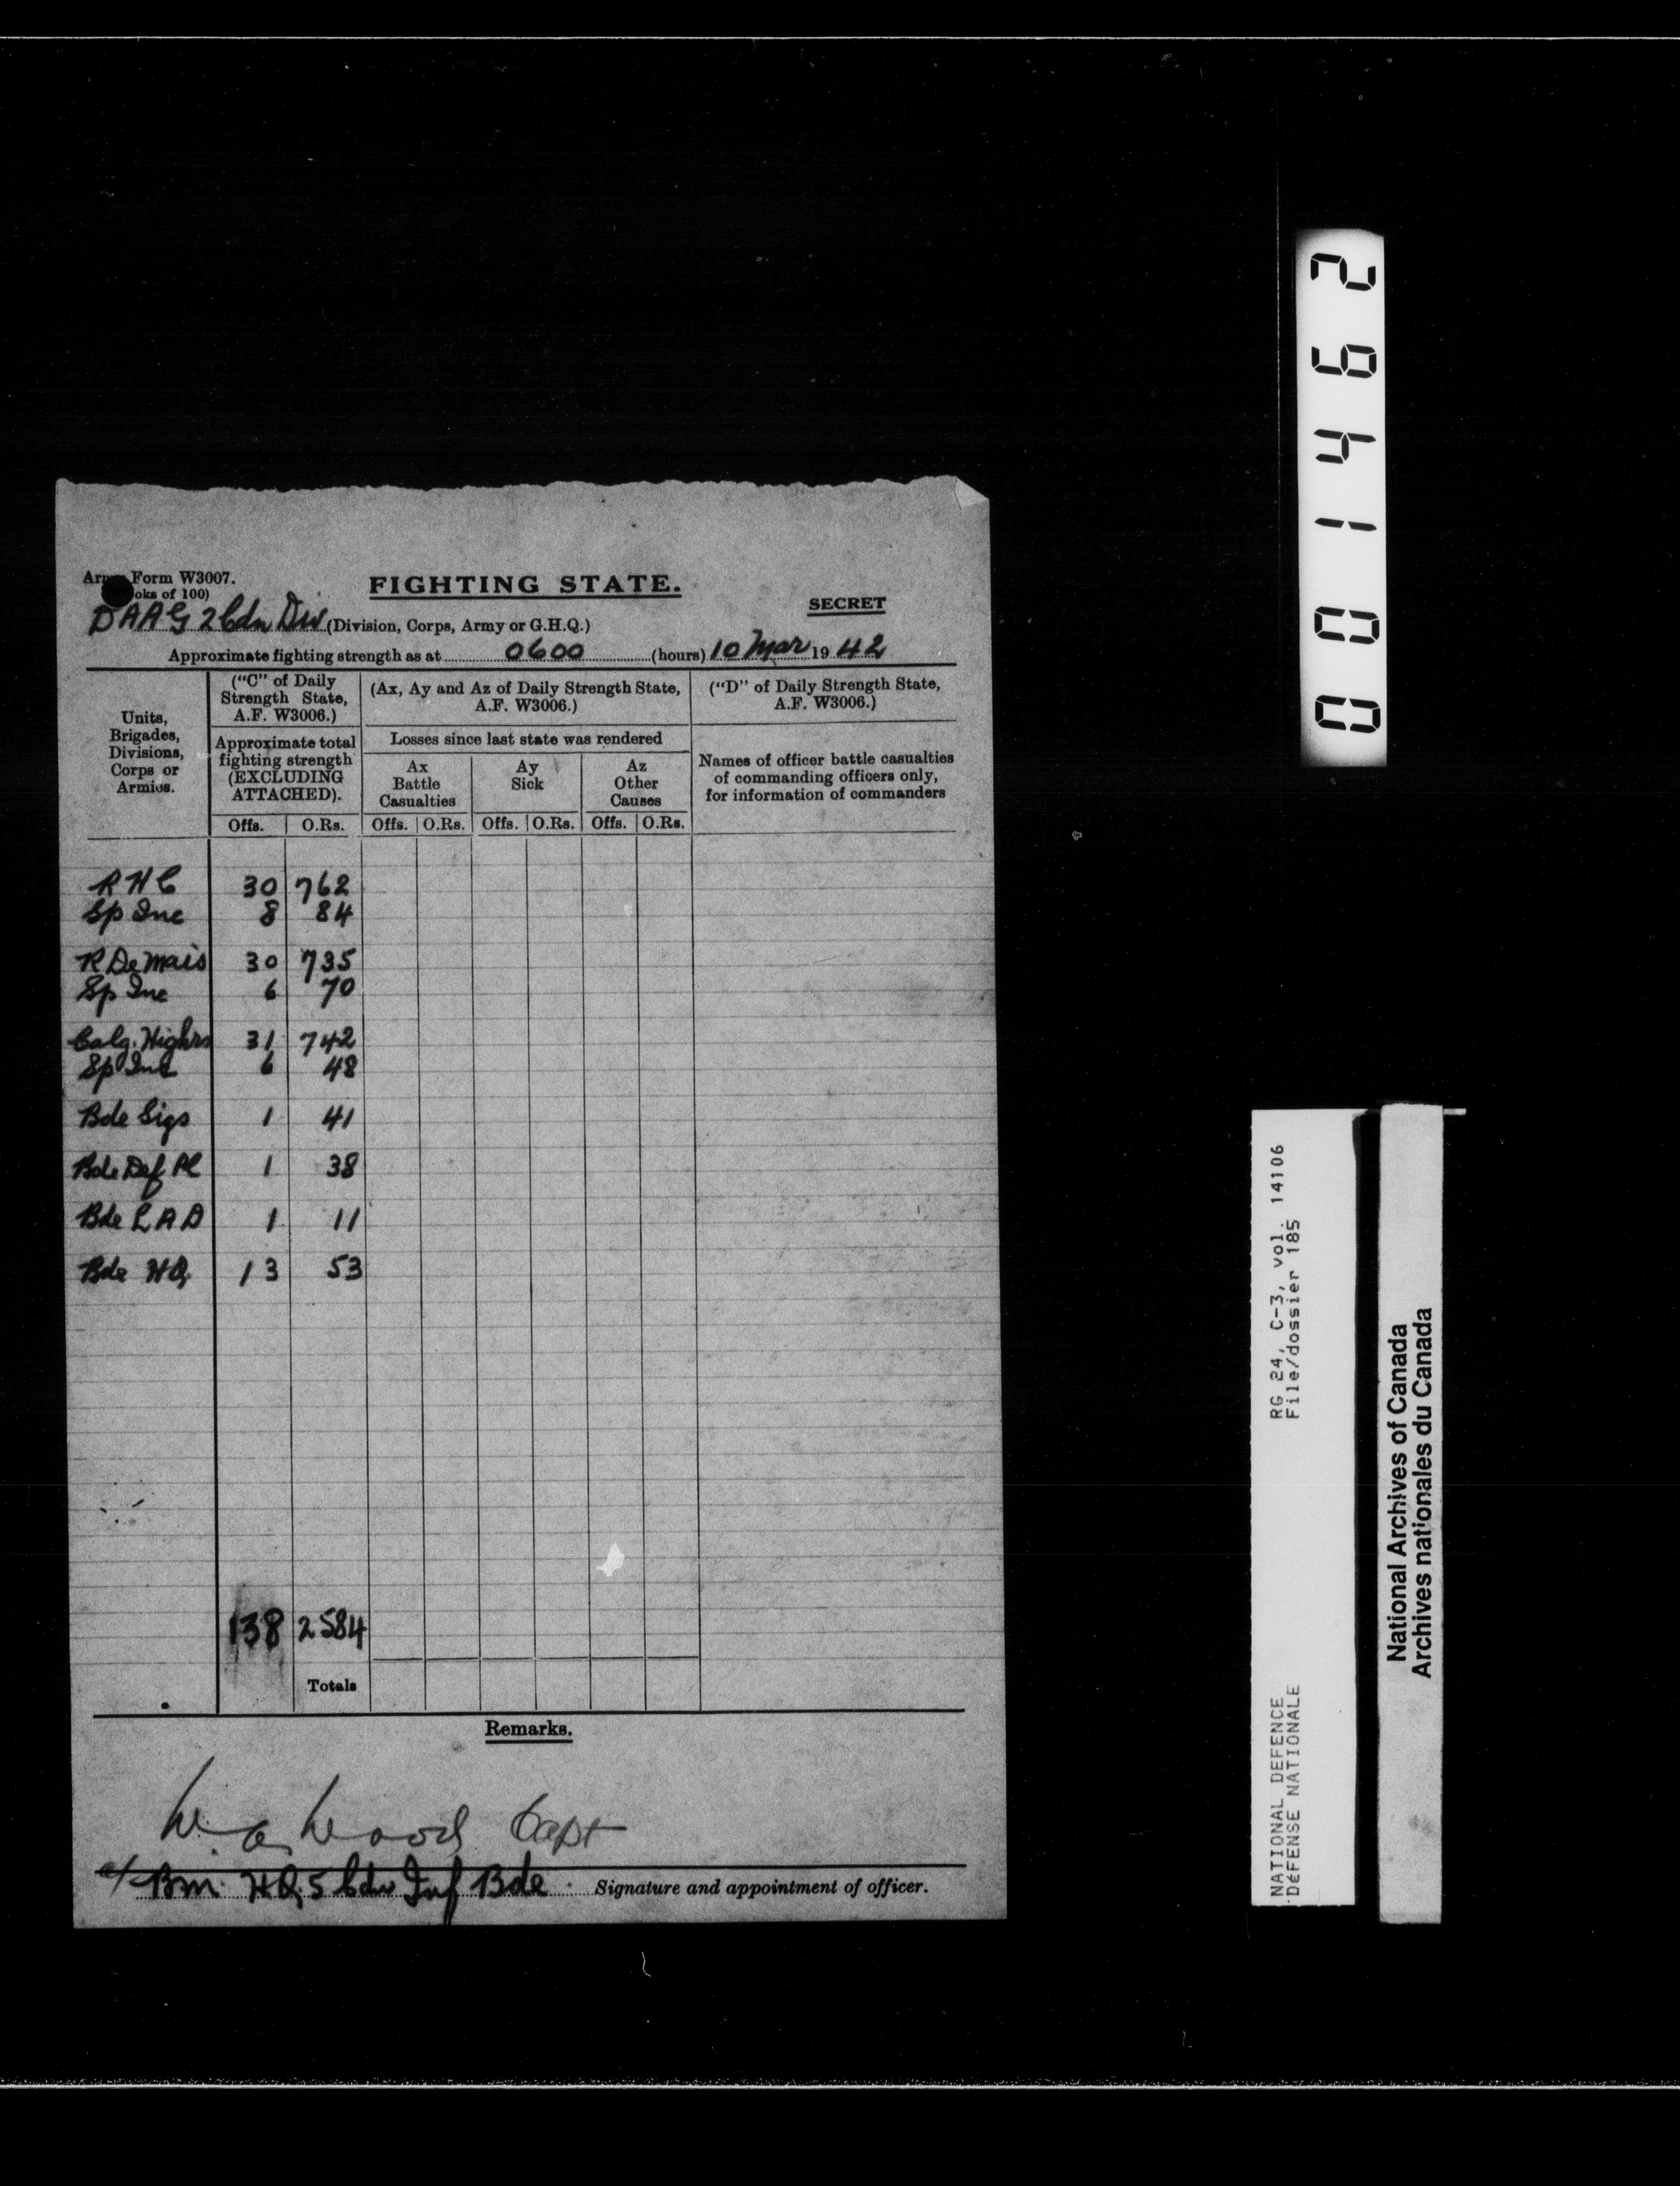 Army Form W3007.
oks of 100)
FIGHTING STATE.
SECRET
DAAG 2 Cdn Div (Division, Corps, Army or G.H.Q.)
Approximate fighting strength as at 0600 (hours) 10 Mar 1942
Units, Brigades, Divisions, Corps or Armies.
("C" of Daily Strength State, A.F. W3006.)
(Ax, Ay and Az of Daily Strength State, A.F. W3006.)
("D" of Daily Strength State, A.F. W3006.)
Approximate total fighting strength (EXCLUDING ATTACHED).
Losses since last state was rendered
Names of officer battle casualties of commanding officers only, for information of commanders
Ax Battle Casualties
Ay Sick
Az Other Causes
Offs. O.Rs. Offs. O.Rs. Offs. O.Rs. Offs. O.Rs.
R H C 30 762
Sp Inc 8 84
R De Mais 30 735
Sp Inc 6 70
Calg. Highrs 31 742
Sp Inc 6 48
Bde Sigs 1 41
Bde Def Pl 1 38
Bde L A D 1 11
Bde HQ 13 53
138 2584
Totals
Remarks.
Wood Capt
a/ Bm. HQ 5 Cdn Inf Bde Signature and appointment of officer.
001462
RG 24, C-3, vol. 14106
File/dossier 185
NATIONAL DEFENCE
DÉFENSE NATIONALE
National Archives of Canada
Archives nationales du Canada